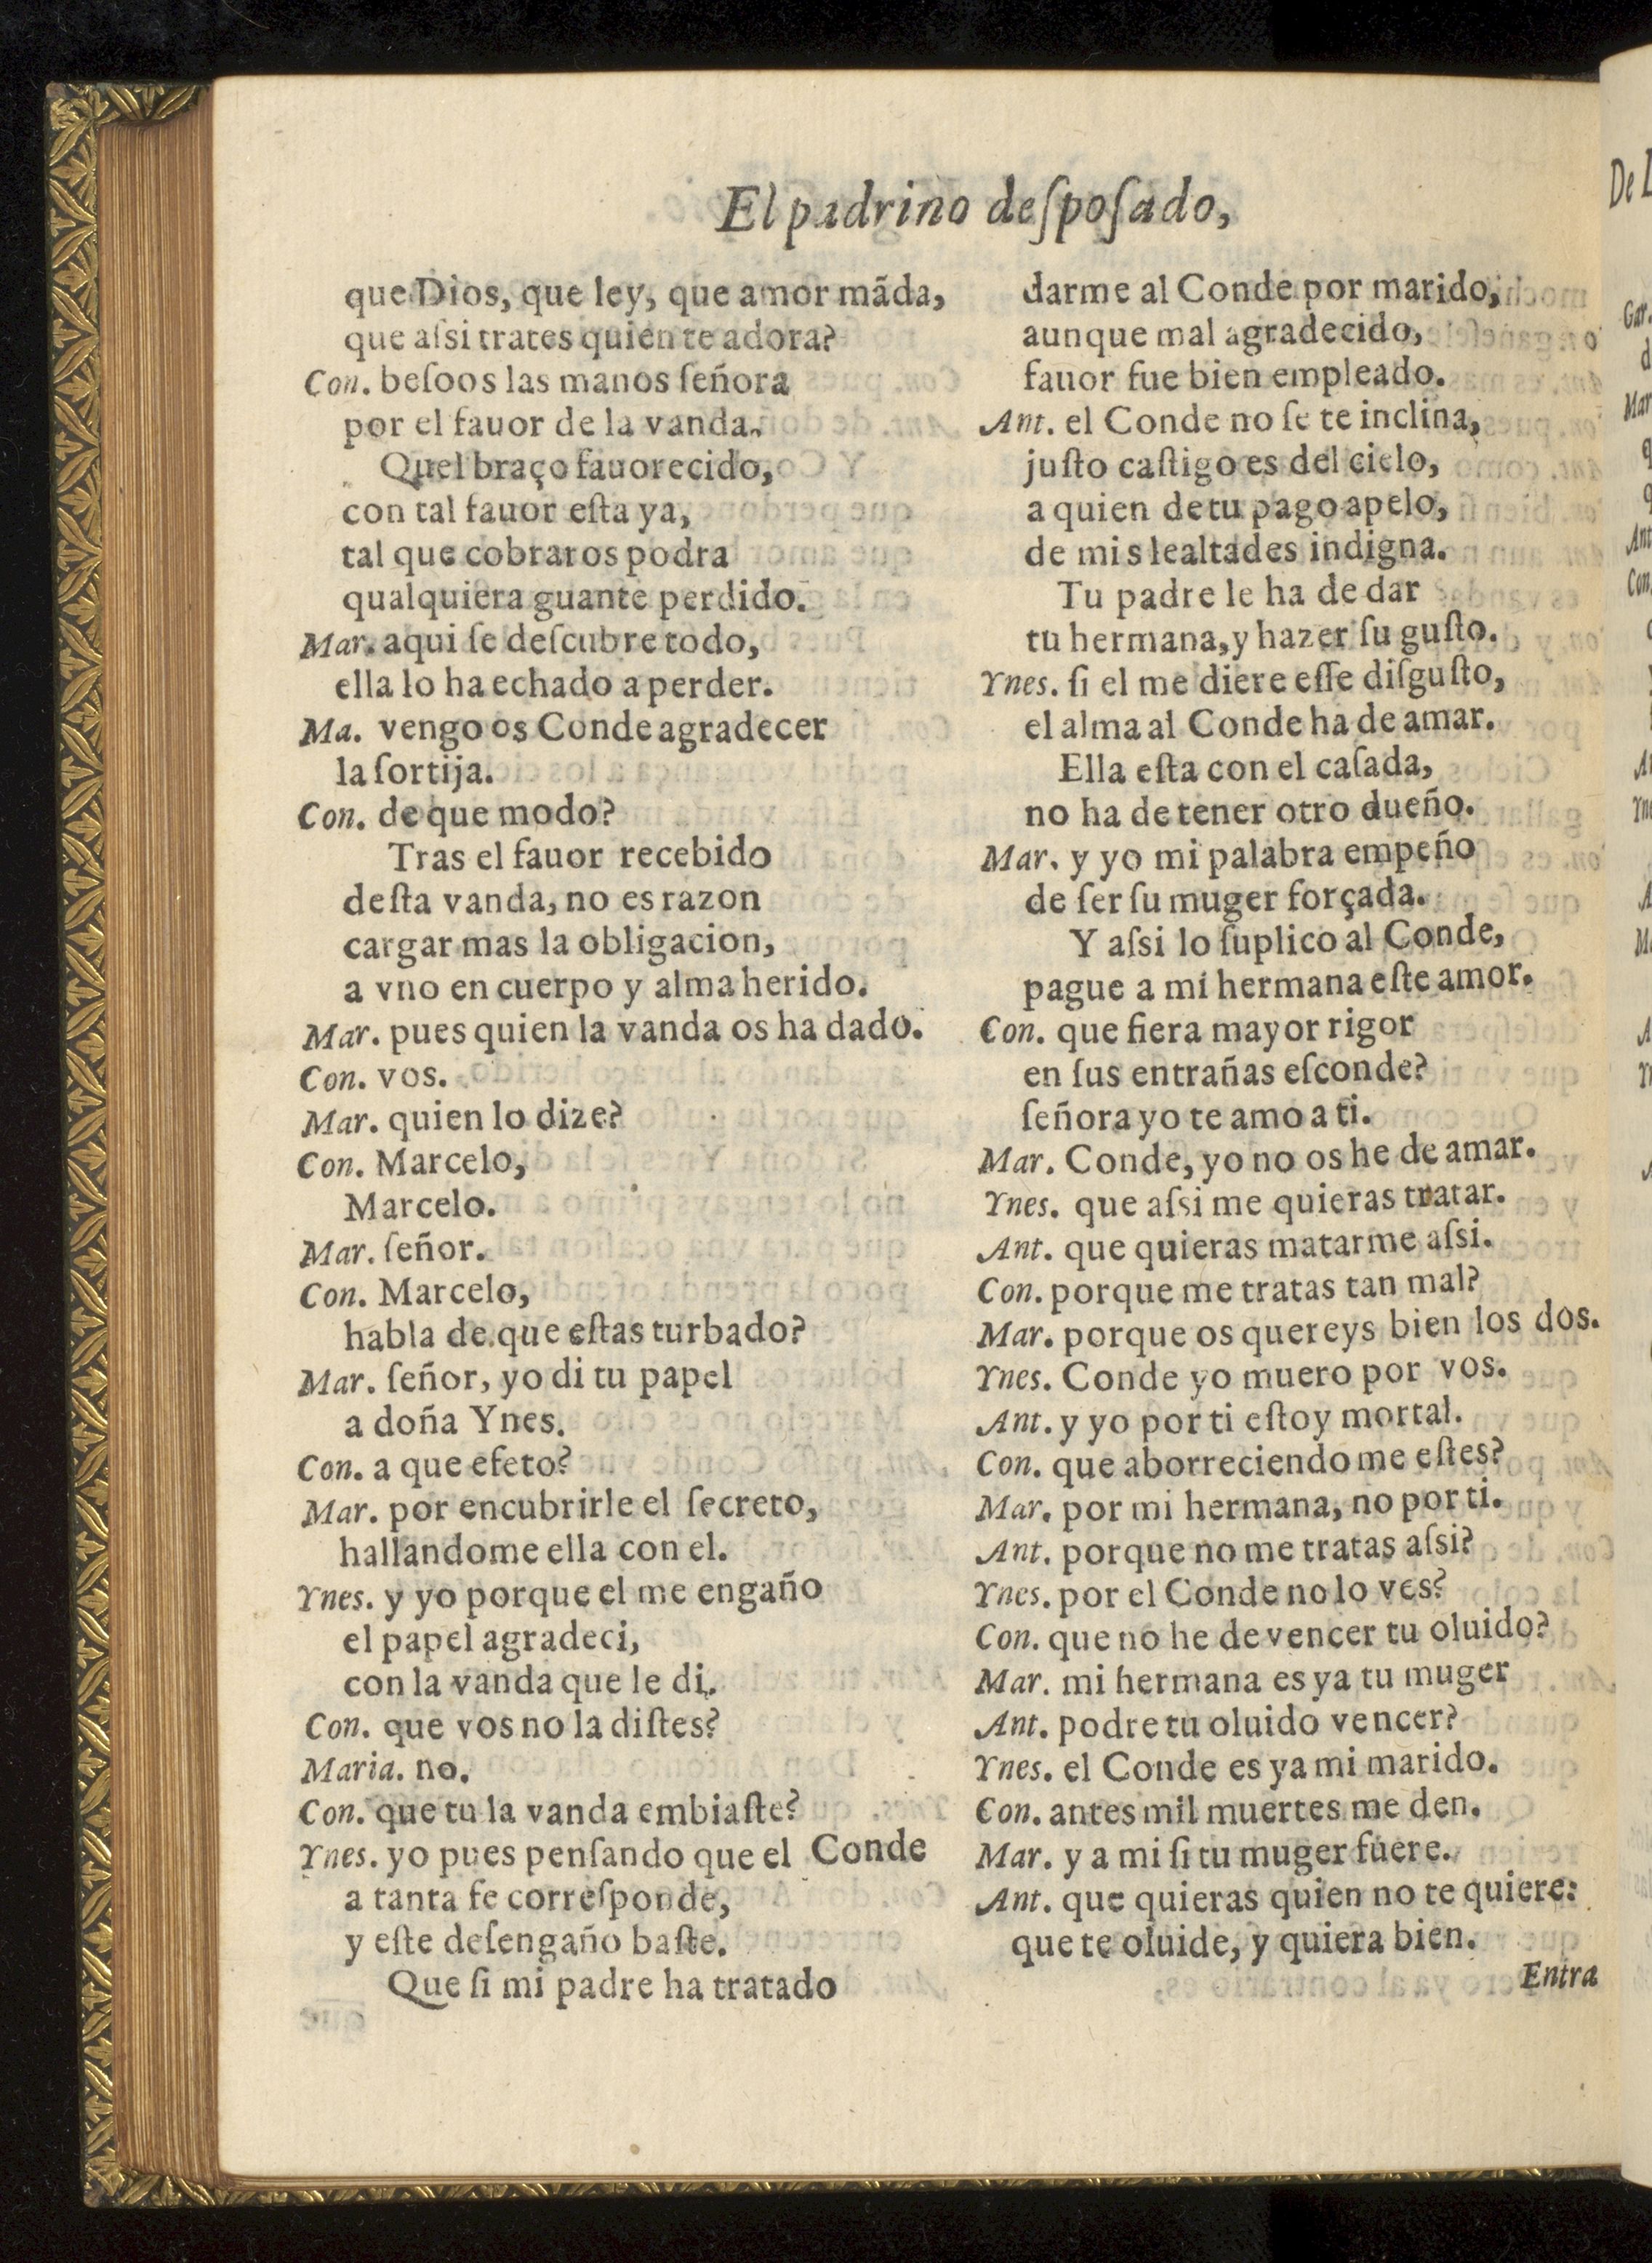 El padrino deſpoſado,
que Dios, que ley, que amor mãda,
que aſsi trates quien te adora?
Con. beſoos las manos ſeñora
por el fauor de la vanda.
Quel braço fauorecido,
con tal fauor eſta ya,
tal que cobraros podra
qualquiera guante perdido.
Mar. aqui ſe deſcubre todo,
ella lo ha echado a perder.
Ma. vengo os Conde agradecer
la ſortija.
Con. de que modo?
Tras el fauor recebido
deſta vanda, no es razon
cargar mas la obligacion,
a vno en cuerpo y alma herido.
Mar. pues quien la vanda os ha dado.
Con. vos.
Mar. quien lo dize?
Con. Marcelo,
Marcelo.
Mar. ſeñor.
Con. Marcelo,
habla de que eſtas turbado?
Mar. ſeñor, yo di tu papel
a doña Ynes.
Con. a que efeto?
Mar. por encubrirle el ſecreto,
hallandome ella con el.
Ynes. y yo porque el me engaño
el papel agradeci,
con la vanda que le di.
Con. que vos no la diſtes?
Maria. no.
Con. que tu la vanda embiaſte?
Ynes. yo pues penſando que el Conde
a tanta fe correſponde,
y eſte deſengaño baſte.
Que ſi mi padre ha tratado
darme al Conde por marido,
aunque mal agradecido,
fauor fue bien empleado.
Ant. el Conde no ſe te inclina,
juſto caſtigo es del cielo,
a quien de tu pago apelo,
de mis lealtades indigna.
Tu padre le ha de dar
tu hermana, y hazer ſu guſto.
Ynes. ſi el me diere eſſe diſguſto,
el alma al Conde ha de amar.
Ella eſta con el caſada,
no ha de tener otro dueño.
Mar. y yo mi palabra empeño
de ſer ſu muger forçada.
Y aſsi lo ſuplico al Conde,
pague a mi hermana eſte amor.
Con. que fiera mayor rigor
en ſus entrañas eſconde?
ſeñora yo te amo a ti.
Mar. Conde, yo no os he de amar.
Ynes. que aſsi me quieras tratar.
Ant. que quieras matarme aſsi.
Con. porque me tratas tan mal?
Mar. porque os quereys bien los dos.
Ynes. Conde yo muero por vos.
Ant. y yo por ti eſtoy mortal.
Con. que aborreciendo me eſtes?
Mar. por mi hermana, no por ti.
Ant. porque no me tratas aſsi?
Ynes. por el Conde no lo ves?
Con. que no he de vencer tu oluido?
Mar. mi hermana es ya tu muger
Ant. podre tu oluido vencer?
Ynes. el Conde es ya mi marido.
Con. antes mil muertes me den.
Mar. y a mi ſi tu muger fuere.
Ant. que quieras quien no te quiere:
que te oluide, y quiera bien.
Entra
De L
Gar.
Mar
Ant
Con.